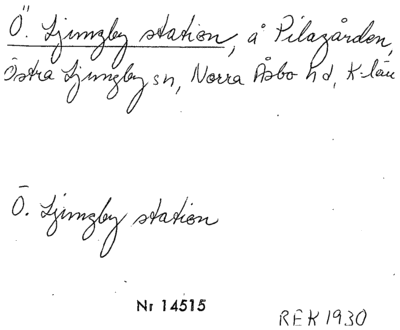 Ö. Ljungby station, å Pilagården,
Östra Ljungby sn, Norra Åsbo hd, K-län
Ö. Ljungby station
Nr 14515
REK 1930